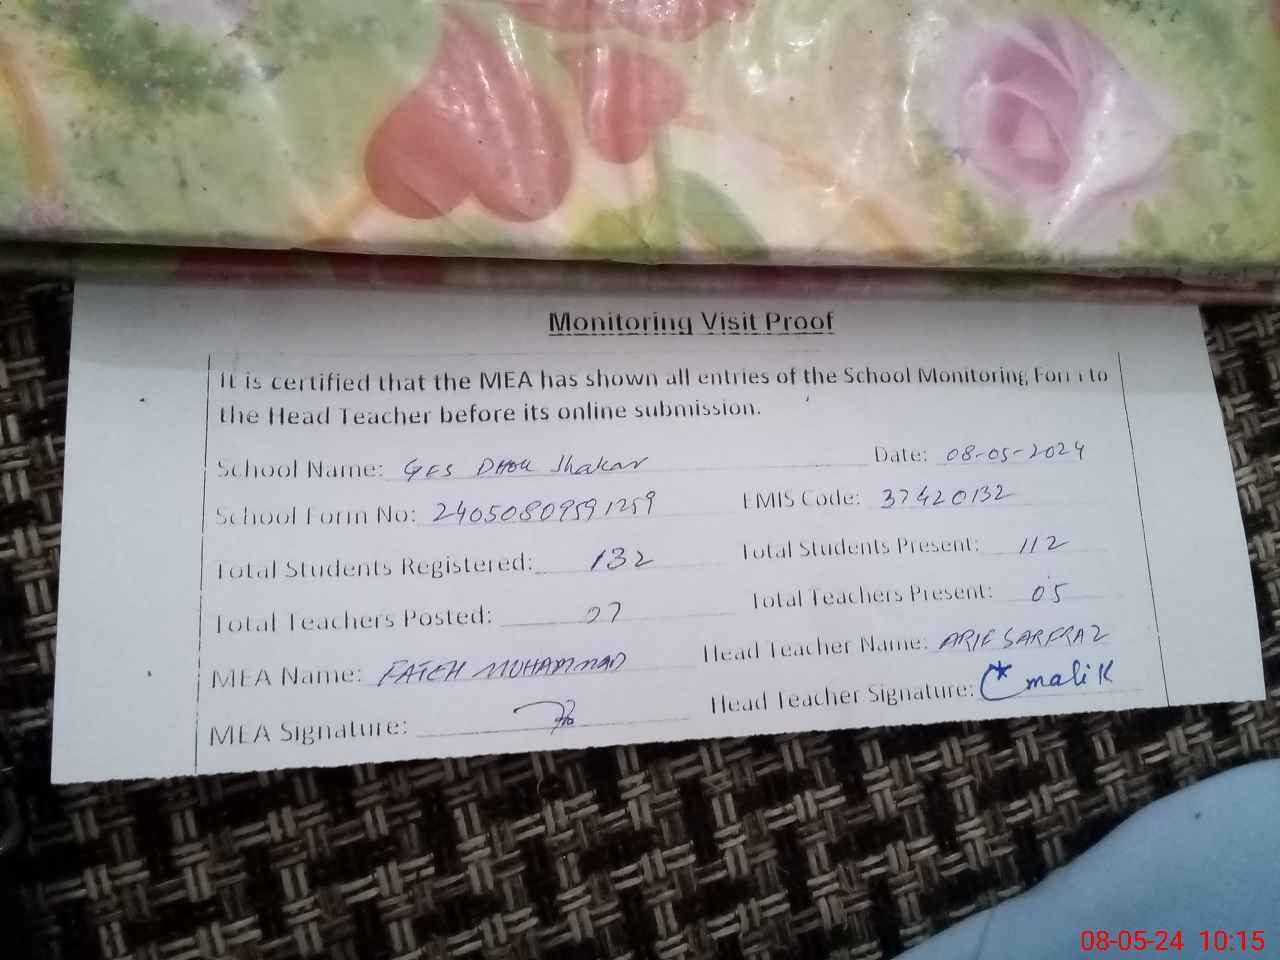 Monitoring Visit Proof
It is certified that the MEA has shown all entries of the School Monitoring Form to
the Head Teacher before its online submission.
School Name: GES DHOK Jhakar Date: 08-05-2024
School Form No: 24050809591259 EMIS Code: 37420132
Total Students Registered: 132 Total Students Present: 112
Total Teachers Posted: 07 Total Teachers Present: 05
MEA Name: FATEH MUHAMMAD Head Teacher Name: ARIF SARFRAZ
MEA Signature: Head Teacher Signature: malik
08-05-24 10:15